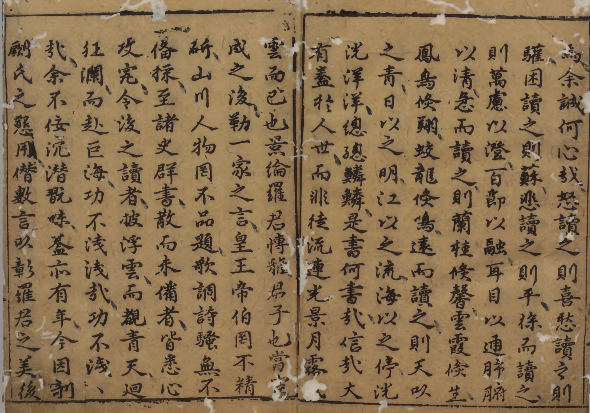 為余誠何心哉怒讀之則喜愁讀之則
驩困讀之則蘇悲讀之則平徐而讀之
則萬慮以澄百節以融耳目以通肺腑
以清悉而讀之則蘭桂倏馨雲霞倏生
鳳鳥倏翔蛟龍倏鳴遠而讀之則天以
之青日以之明江以之流海以之停洸
洸洋洋總總鱗鱗是書何書哉信哉大
有益於人世而非徒流連光景月露
雲而已也景倫羅君博雅君子也當
成之後勒一家之言皇王帝伯罔不精
研山川人物罔不品題歌調詩騷無不
備採至諸史群書散而未備者皆悉心
攻究令後之讀者披浮雲而覩青天迴
狂瀾而赴巨海功不淺淺哉功不淺、
哉余不佞沉潛翫味蓋亦有年今因剞
劂氏之懇用僭數言以彰羅君之美後